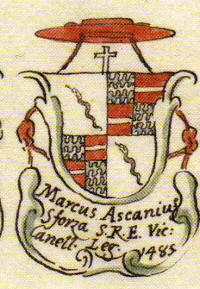 Marcus Ascanius
Sforza S.R.E. Vic:
Canell. Leg.
1485